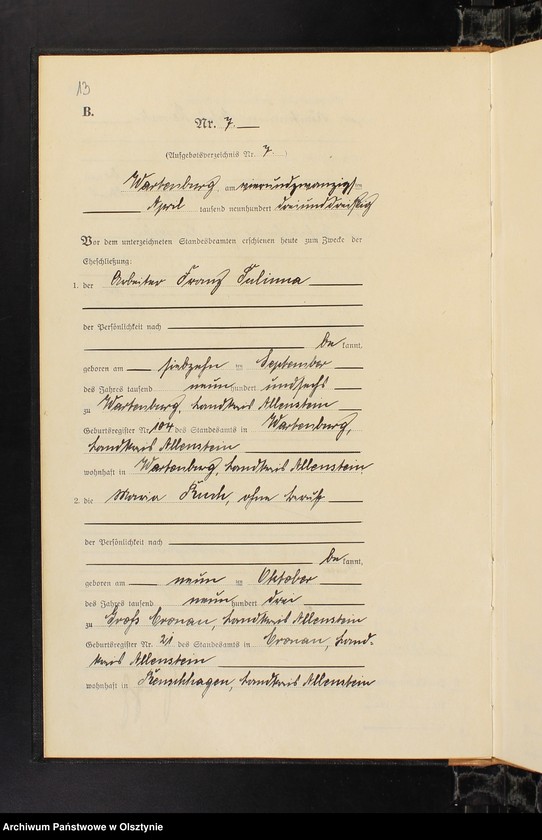 13
B.
Nr. 7.
(Aufgebotsverzeichnis Nr. 7.)
Wartenburg, am vierundzwanzigsten
April tausend neunhundert dreiunddreißig
Vor dem unterzeichneten Standesbeamten erschienen heute zum Zwecke der
Eheschließung:
1. der Arbeiter Franz
der Persönlichkeit nach
be kannt,
geboren am siebzehn ten September
des Jahres tausend neun hundert undsechs
zu Wartenburg, Landkreis Allenstein
Geburtsregister Nr. 104 des Standesamts in Wartenburg,
Landkreis Allenstein
wohnhaft in Wartenburg, Landkreis Allenstein
2. die Maria ohne Beruf
der Persönlichkeit nach
be kannt,
geboren am neun ten Oktober
des Jahres tausend neun hundert drei
zu Groß Cronau, Landkreis Allenstein
Geburtsregister Nr. 21 des Standesamts in Cronau, Land-
kreis Allenstein
wohnhaft in Reuschhagen, Landkreis Allenstein
Archiwum Państwowe w Olsztynie